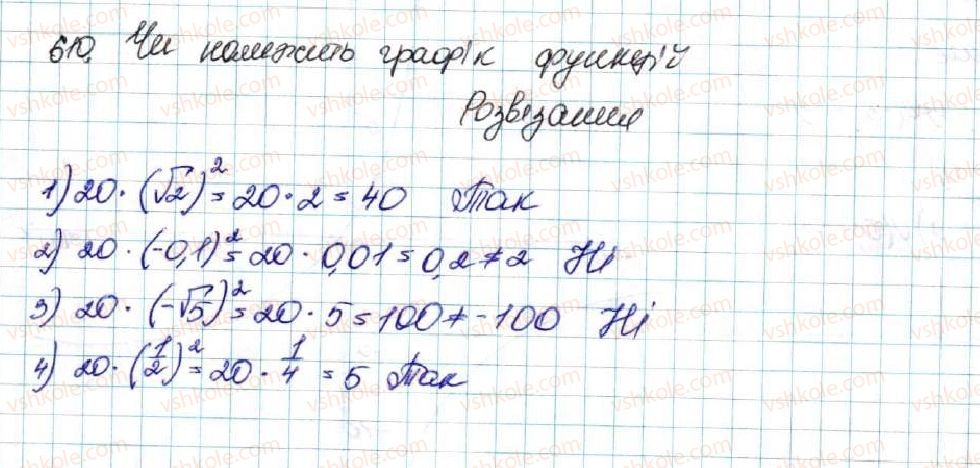 610. Чи належить графік функцій
Розвізання
1) 20 · (√2)² = 20 · 2 = 40 Так
2) 20 · (-0,1)² = 20 · 0,01 = 0,2 ≠ 2 Ні
3) 20 · (-√5)² = 20 · 5 = 100 ≠ -100 Ні
4) 20 · (1/2)² = 20 · 1/4 = 5 Так